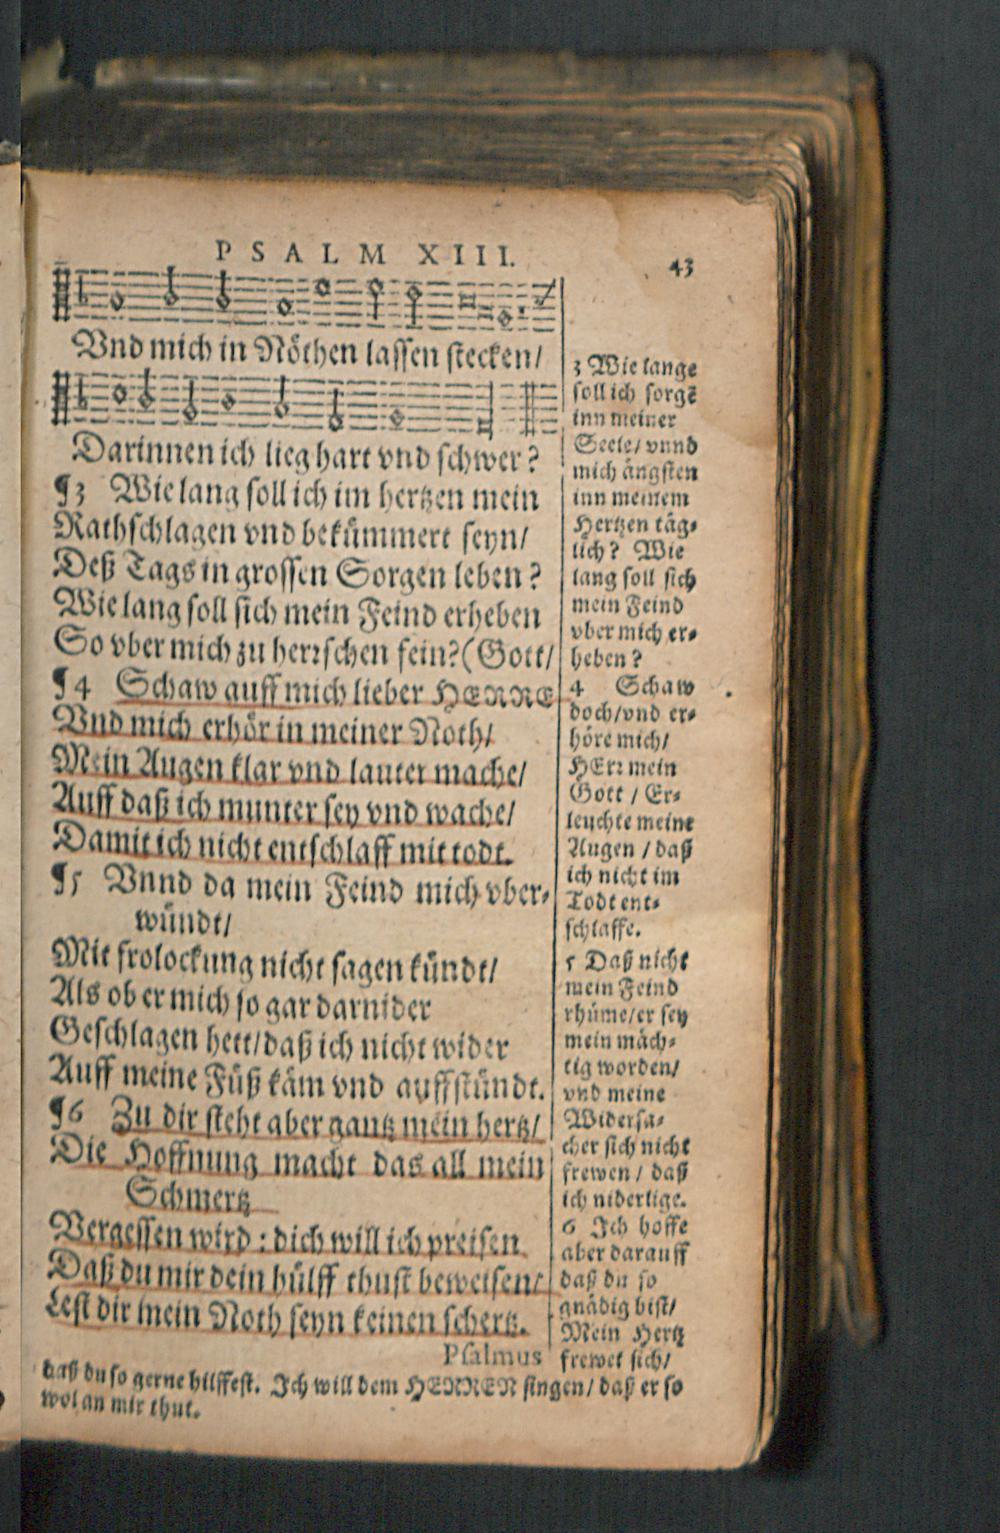 PSALM XIII.
43
Vnd mich in Nöthen lassen stecken/
Darinnen ich lieg hart vnd schwer?
¶3 Wie lang soll ich im hertzen mein
Rathschlagen vnd bekümmert seyn/
Deß Tags in grossen Sorgen leben?
Wie lang soll sich mein Feind erheben
So vber mich zu herꝛschen fein?(Gott/
¶4 Schaw auff mich lieber HERRE
Vnd mich erhör in meiner Noth/
Mein Augen klar vnd lauter mache/
Auff daß ich munter sey vnd wache/
Damit ich nicht entschlaff mit todt.
¶5 Vnnd da mein Feind mich vber-
wündt/
Mit frolockung nicht sagen kündt/
Als ob er mich so gar darnider
Geschlagen hett/daß ich nicht wider
Auff meine Füß käm vnd auffstündt.
¶6 Zu dir steht aber gantz mein hertz/
Die Hoffnung macht das all mein
Schmertz
Vergessen wird: dich will ich preisen
Daß du mir dein hülff thust beweisen/
Lest dir mein Noth seyn keinen schertz.
Psalmus
3 Wie lange
soll ich sorgē
inn meiner
Seele/ vnnd
mich ängsten
inn meinem
Hertzen täg-
lich? Wie
lang soll sich
mein Feind
vber mich er-
heben?
4 Schaw
doch/vnd er-
höre mich/
HErꝛ mein
Gott / Er-
leuchte meine
Augen / daß
ich nicht im
Todt ent-
schlaffe.
5 Daß nicht
mein Feind
rhüme/er sey
mein mäch-
tig worden/
vnd meine
Widersa-
cher sich nicht
frewen / daß
ich niderlige.
6 Ich hoffe
aber darauff
daß du so
gnädig bist/
Mein Hertz
frewet sich/
daß du so gerne hilffest. Ich will dem HERREN singen/ daß er so
wol an mir thut.